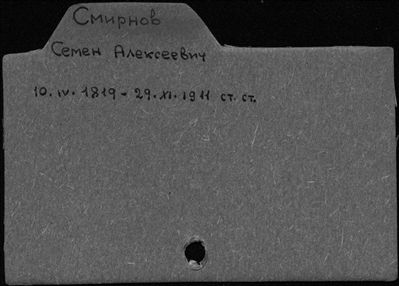 Смирнов
Семен Алексеевич
10.IV.1819 - 29.XI.1911 ст. ст.